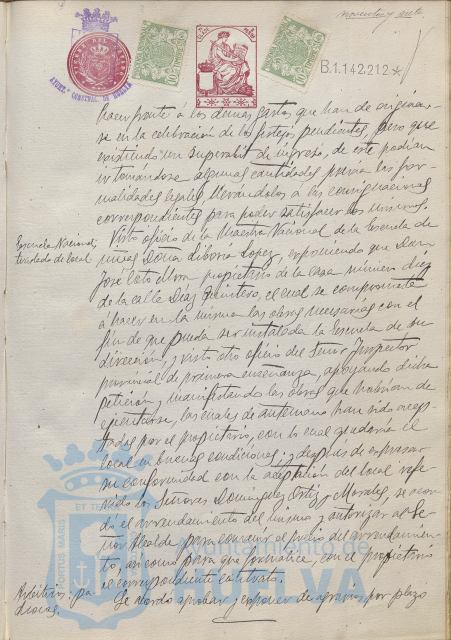 noventa y siete
B.1.142.212*
AYUNT. CONSTNAL. DE HUELVA
hacer frente á los demas gastos que han de originar-
se en la celebración de los festejos pendientes, pero que
existiendo un superabit de ingreso, de este podian
ir tomándose algunas cantidades previa las for-
malidades legales, llevándolos á las consignaciones
correspondientes para poder satisfacer los mismos.
Escuela Nacional;
traslado de local
Visto oficio de la Maestra Nacional de la Escuela de
niñas Doña Liboria Lopez, exponiendo que Don
José Coto Mora propietario de la casa número diez
de la calle Diaz Quintero, el cual se compromete
á hacer en la misma las obras necesarias con el
fin de que pueda ser instalada la Escuela de su
dirección, y visto otro oficio del Señor Inspector
provincial de primera enseñanza, apoyando dicha
petición y manifestando las obras que habrian de
ejecutarse, las cuales de antemano han sido acep-
tadas por el propietario, con lo cual quedaria el
local en buenas condiciones; y despues de expresar
su conformidad con la aceptación del local refe-
rido los Señores Dominguez Ortiz y Morales, se acor-
dó el arrendamiento del mismo y autorizar al Se-
ñor Alcalde para convenir el precio del arrendamien-
to, asi como para que formalice, con el propietario
el correspondiente contrato.
Arbitrios: pa-
Se acordó aprobar y exponer de agravios por plazo
PORTUS MARIS
ET TE
Ayuntamiento de
HUELVA